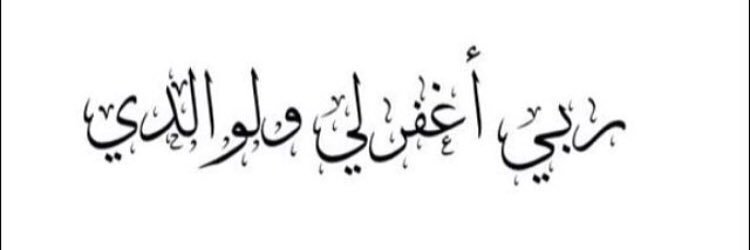 ربي أغفر لي ولوالدي